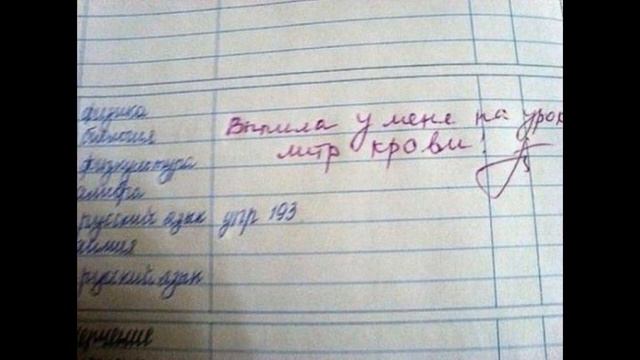 физика
биология
Выпила у мене на урок
физкультура
литр крови!
алгебра
русский язык упр 193
химия
русский язык
черчение